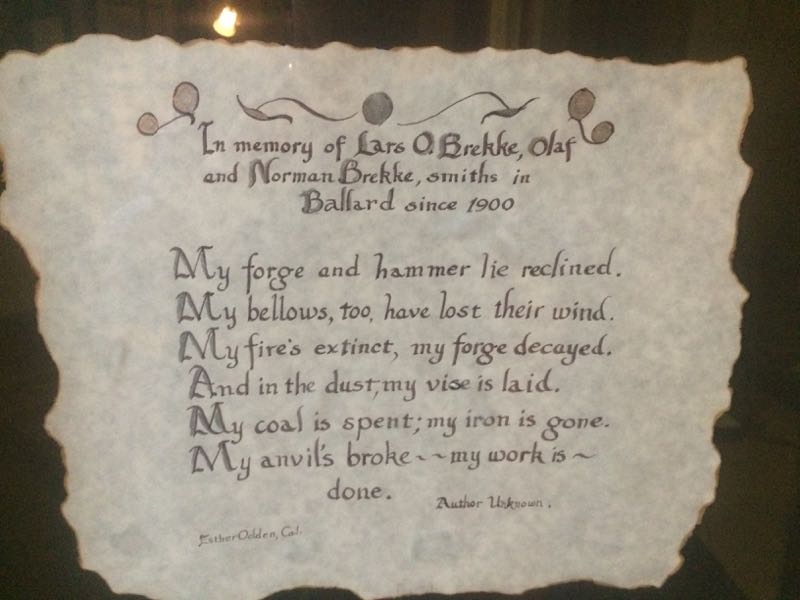 In memory of Lars O. Brekke, Olaf
and Norman Brekke, smiths in
Ballard since 1900
My forge and hammer lie reclined.
My bellows, too, have lost their wind.
My fire's extinct, my forge decayed.
And in the dust, my vise is laid.
My coal is spent; my iron is gone.
My anvil's broke ~ ~ my work is ~
done.
Author Unknown.
Esther Odden, Cal.